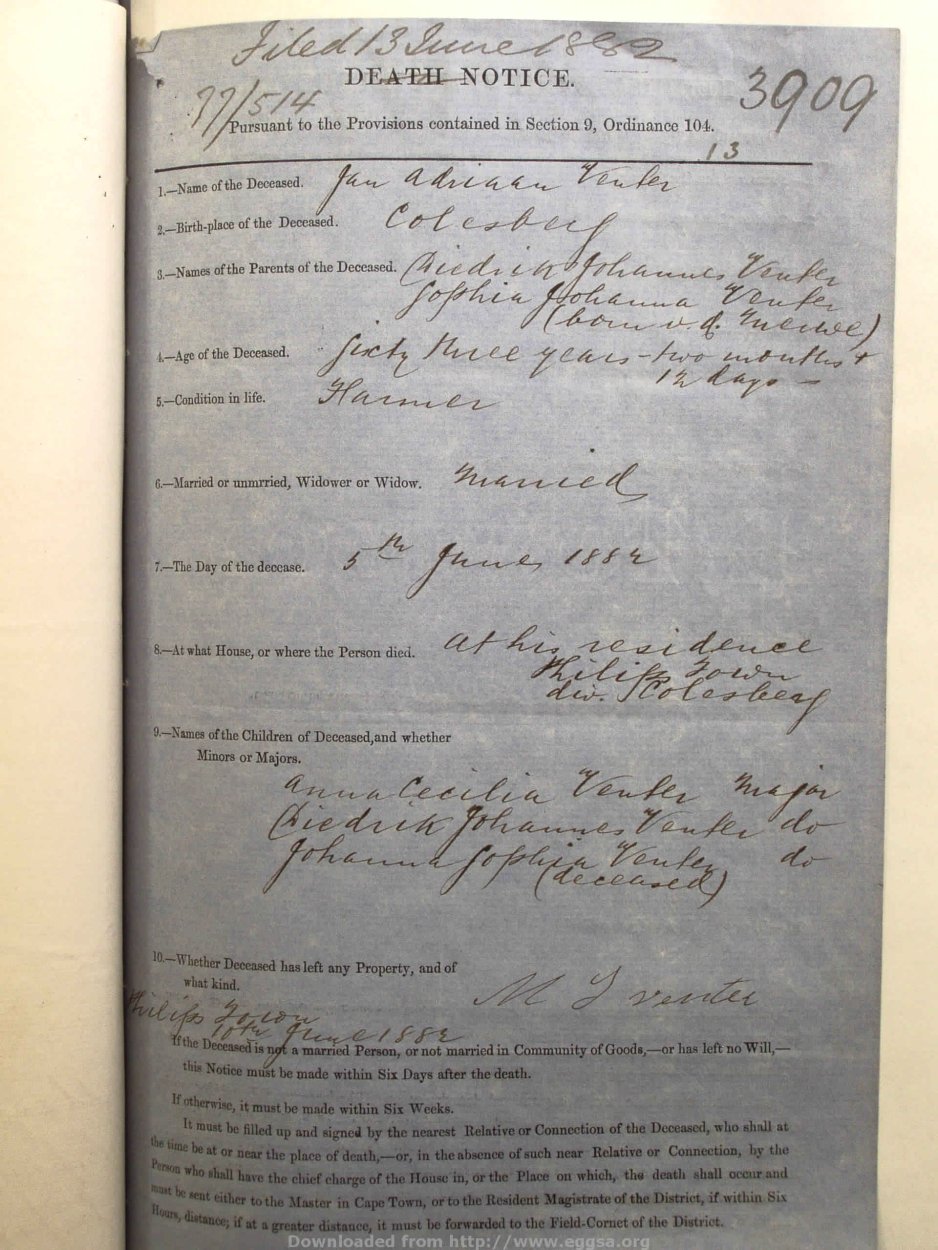 Filed 13 June 1882
DEATH NOTICE.
3909
77/514
Pursuant to the Provisions contained in Section 9, Ordinance 104.
13
1.—Name of the Deceased. Jan Adriaan Venter
2.—Birth-place of the Deceased. Colesberg
3.—Names of the Parents of the Deceased. Diedrik Johannes Venter
Sophia Johanna Venter
(born v. d. Merwe)
4.—Age of the Deceased. Sixty three years - two months +
12 days -
5.—Condition in life. Farmer
6.—Married or unmrried, Widower or Widow. Married
7.—The Day of the decease. 5th June 1882
8.—At what House, or where the Person died. At his residence
Philips Town
div. Colesberg
9.—Names of the Children of Deceased,and whether
Minors or Majors.
Anna Cecilia Venter Major
Diedrik Johannes Venter do
Johanna Sophia Venter do
(deceased)
10.—Whether Deceased has left any Property, and of
what kind.
M J Venter
Philips Town
10th June 1882
If the Deceased is not a married Person, or not married in Community of Goods,—or has left no Will,—
this Notice must be made within Six Days after the death.
If otherwise, it must be made within Six Weeks.
It must be filled up and signed by the nearest Relative or Connection of the Deceased, who shall at
the time be at or near the place of death,—or, in the absence of such near Relative or Connection, by the
Person who shall have the chief charge of the House in, or the Place on which, the death shall occur and
must be sent either to the Master in Cape Town, or to the Resident Magistrate of the District, if within Six
Hours, distance; if at a greater distance, it must be forwarded to the Field-Cornet of the District.
Downloaded from http://www.eggsa.org